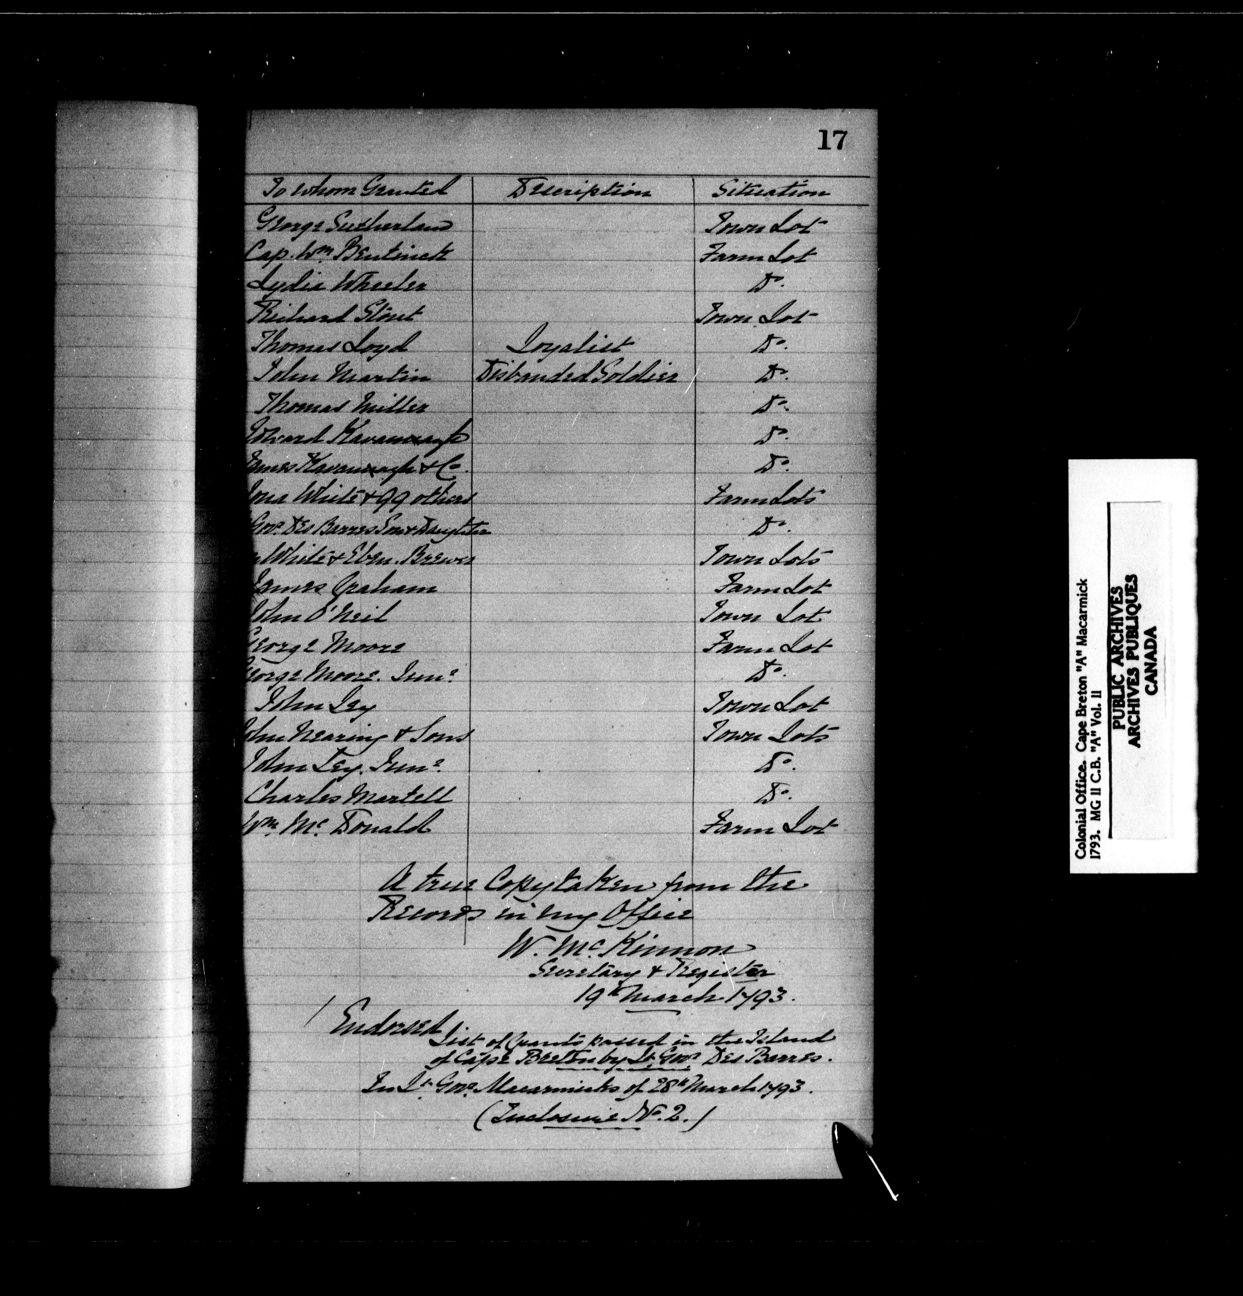 17
To whom Granted Description Situation
George Sutherland Town Lot
Cap. Wm. Bentinck Farm Lot
Lydia Wheeler Do.
Richard Stout Town Lot
Thomas Loyd Loyalist Do.
John Martin Disbanded Soldier Do.
Thomas Miller Do.
Edward Kavanaugh Do.
James Kavanaugh & Co. Do.
Jona White & 99 others Farm Lots
Govr. Des Barres Son & Daughter Do.
White & Eben. Brewer Town Lots
James Graham Farm Lot
John O'Neil Town Lot
George Moore Farm Lot
George Moore. Junr. Do.
John Ley Town Lot
John Nearing & Sons Town Lots
John Ley. Junr. Do.
Charles Martell Do.
Wm. Mc. Donald Farm Lot
A true Copy taken from the
Records in my Office
W. Mc. Kinnon
Secretary & Register
19th March 1793.
Endorsed
List of Grants passed in the Island
of Cape Breton by Lt. Govr. Des Barres.
In Lt. Govr. Macarmicks of 28th March 1793.
(Inclosure No. 2.)
Colonial Office. Cape Breton "A" Macarmick
1793. MG 11 C.B. "A" Vol. 11
PUBLIC ARCHIVES
ARCHIVES PUBLIQUES
CANADA